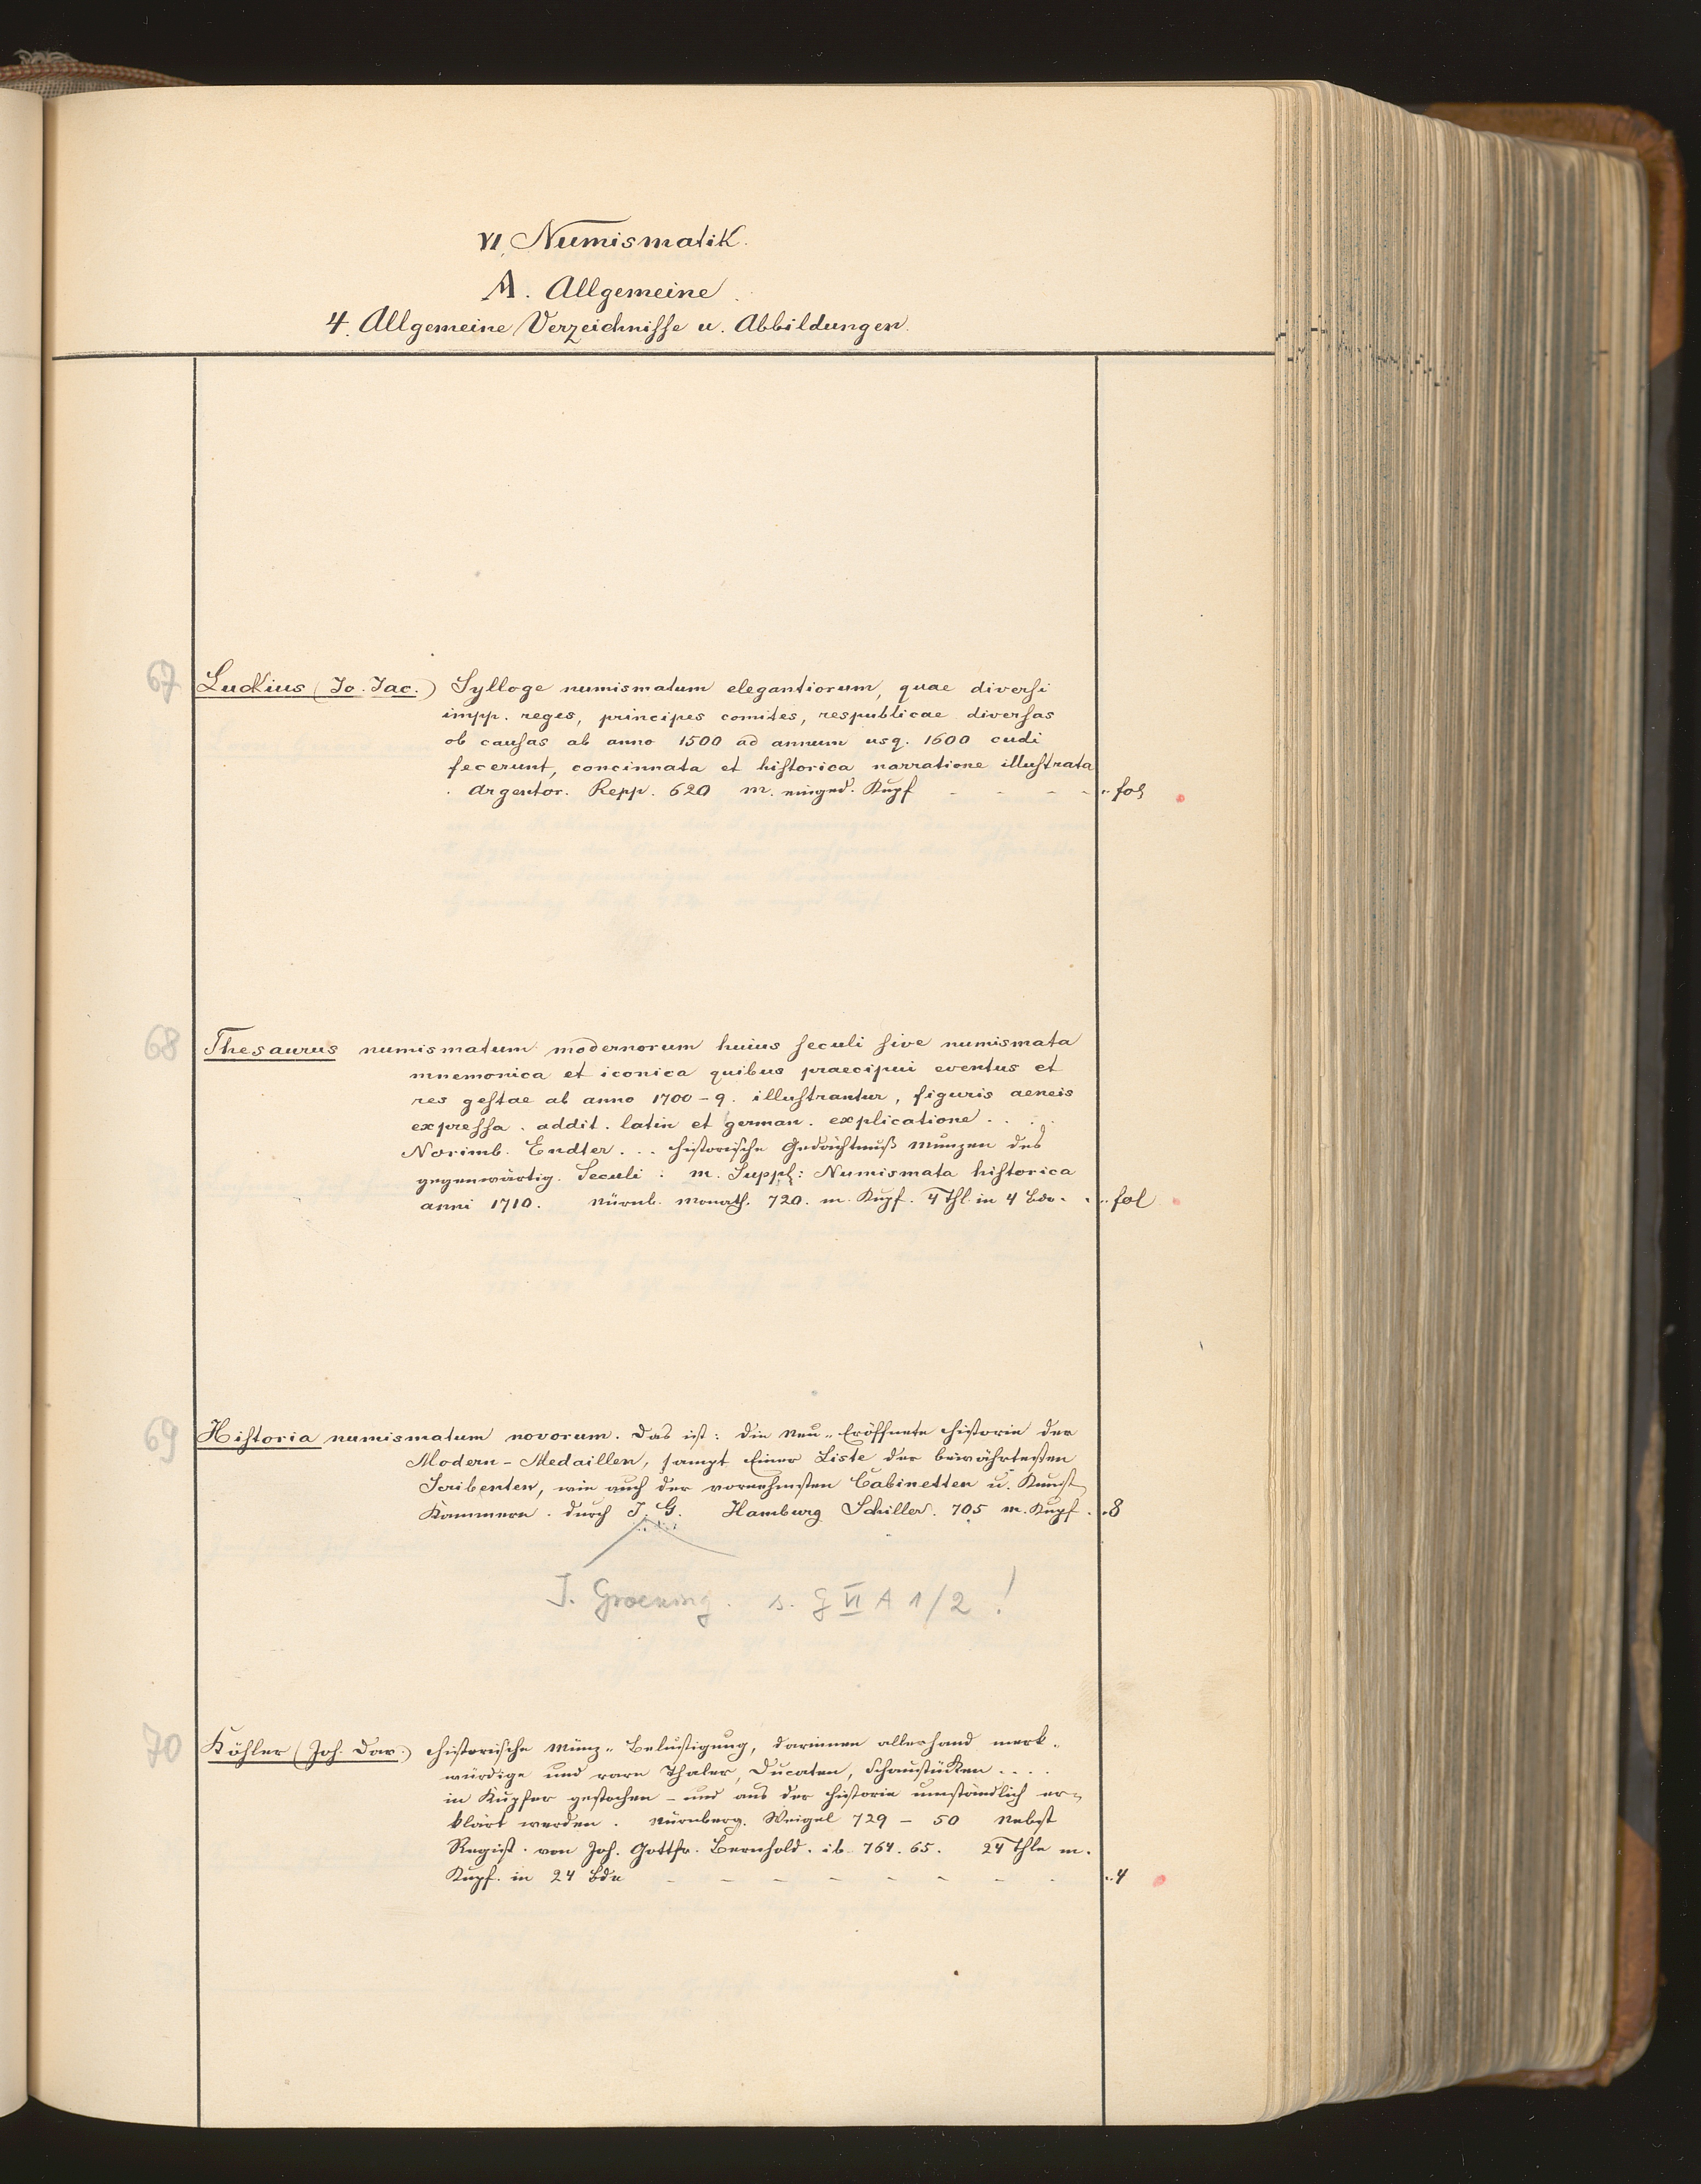 VI. Numismatik.
A. Allgemeine.
4. Allgemeine Verzeichnisse u. Abbildungen.
67 Luckius (Jo. Jac.) Sylloge numismatum elegantiorum, quae diversi
impp. reges, principes comites, respublicae diversas
ob causas ab anno 1500 ad annum usq. 1600 cudi
fecerunt, concinnata et historica narratione illustrata
. Argentor. Repp. 620 m. einged. Kupf - - - - „ fol
68 Thesaurus numismatum modernorum huius seculi sive numismata
mnemonica et iconica quibus praecipui eventus et
res gestae ab anno 1700-9. illustrantur, figuris aeneis
expressa . addit. latin et german. explicatione . . .
Norimb. Endter . . . historische Gedächtnuß Munzen des
gegenwärtig. Seculi : m. Suppl: Numismata historica
anni 1710. Nürnb. Monath. 720. m. Kupf. 4 Thl. in 4 Bdn. „ fol
69 Historia numismatum novorum. Das ist: die Neu-Eröffnete Historie der
Modern-Medaillen, sampt einer Liste der bewährtesten
Scribenten, wie auch der vornehmsten Cabinetten u. Kunst
Kammern. durch J. G. Hamburg Schiller. 705 m. Kupf. „ 8
J. Groening. s. G VI A 1/2 !
70 Köhler (Joh. Dav.) historische Münz-Belustigung, darinnen allerhand merk-
würdige und rare Thaler, Ducaten, Schaustücken . . . .
in Kupfer gestochen - und aus der Historie umständlich er-
klärt werden. Nürnberg. Weigel 729 - 50 Nebst
Regist. von Joh. Gottfr. Bernhold. ib. 764. 65. 24 Thle m.
Kupf. in 24 Bdn - - - - - - - - „ 4